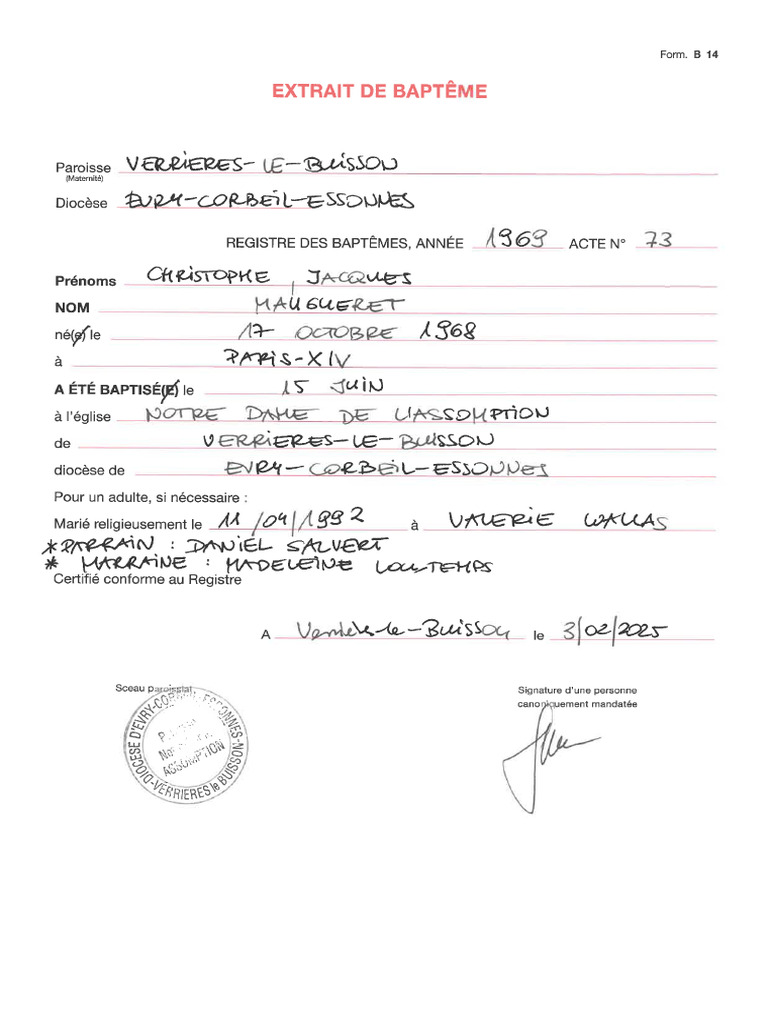 Form. B 14
EXTRAIT DE BAPTÊME
Paroisse VERRIERES-LE-BUISSON
(Maternité)
Diocèse EVRY-CORBEIL-ESSONNES
REGISTRE DES BAPTÊMES, ANNÉE 1969 ACTE N° 73
Prénoms CHRISTOPHE, JACQUES
NOM MAUGUERET
né(e) le 17 OCTOBRE 1968
à PARIS-XIV
A ÉTÉ BAPTISÉ(E) le 15 JUIN
à l'église NOTRE DAME DE L'ASSOMPTION
de VERRIERES-LE-BUISSON
diocèse de EVRY-CORBEIL-ESSONNES
Pour un adulte, si nécessaire :
Marié religieusement le 11/04/1992 à VALERIE WALLAS
* PARRAIN : DANIEL SALVERT
* MARRAINE : MADELEINE
Certifié conforme au Registre
A Verrières-le-Buisson le 3/02/2025
Sceau paroissial
Signature d'une personne
canoniquement mandatée
DIOCÈSE D'EVRY-CORBEIL-ESSONNES
ASSOMPTION
VERRIERES le BUISSON